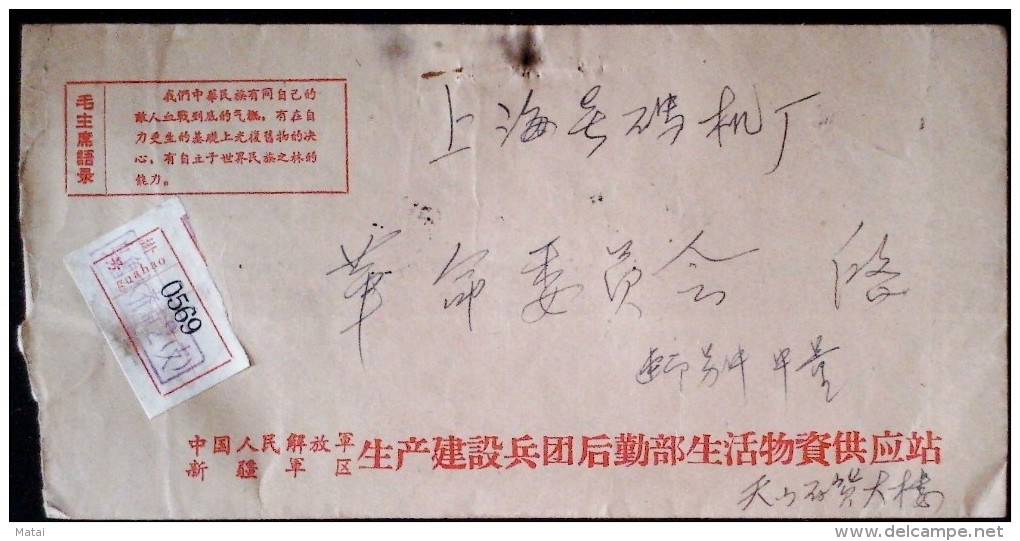 毛主席語录
我們中華民族有同自己的
敵人血戰到底的气槪，有在自
力更生的基礎上光復舊物的决
心，有自立于世界民族之林的
能力。
上海
机厂
革命委员会
guahao
0569
中国人民解放軍
新疆軍区
生产建設兵团后勤部生活物資供应站
天山
大楼
Matai
delcampe.net